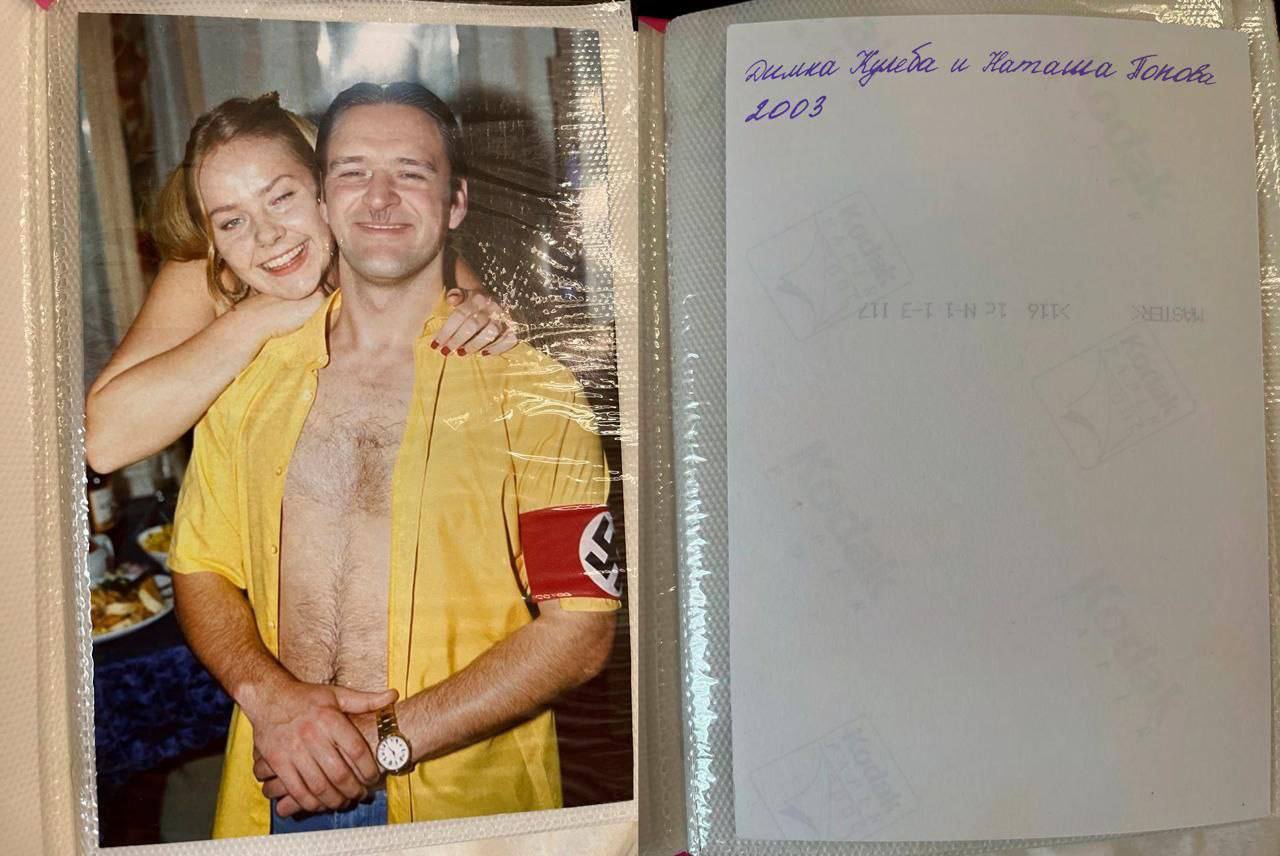 Димка Кулеба и Наташа Попова
2003
Kodak
Kodak
<MASTER> >116 1c N-1-1-3 117
Kodak
Kodak
Kodak
Kodak